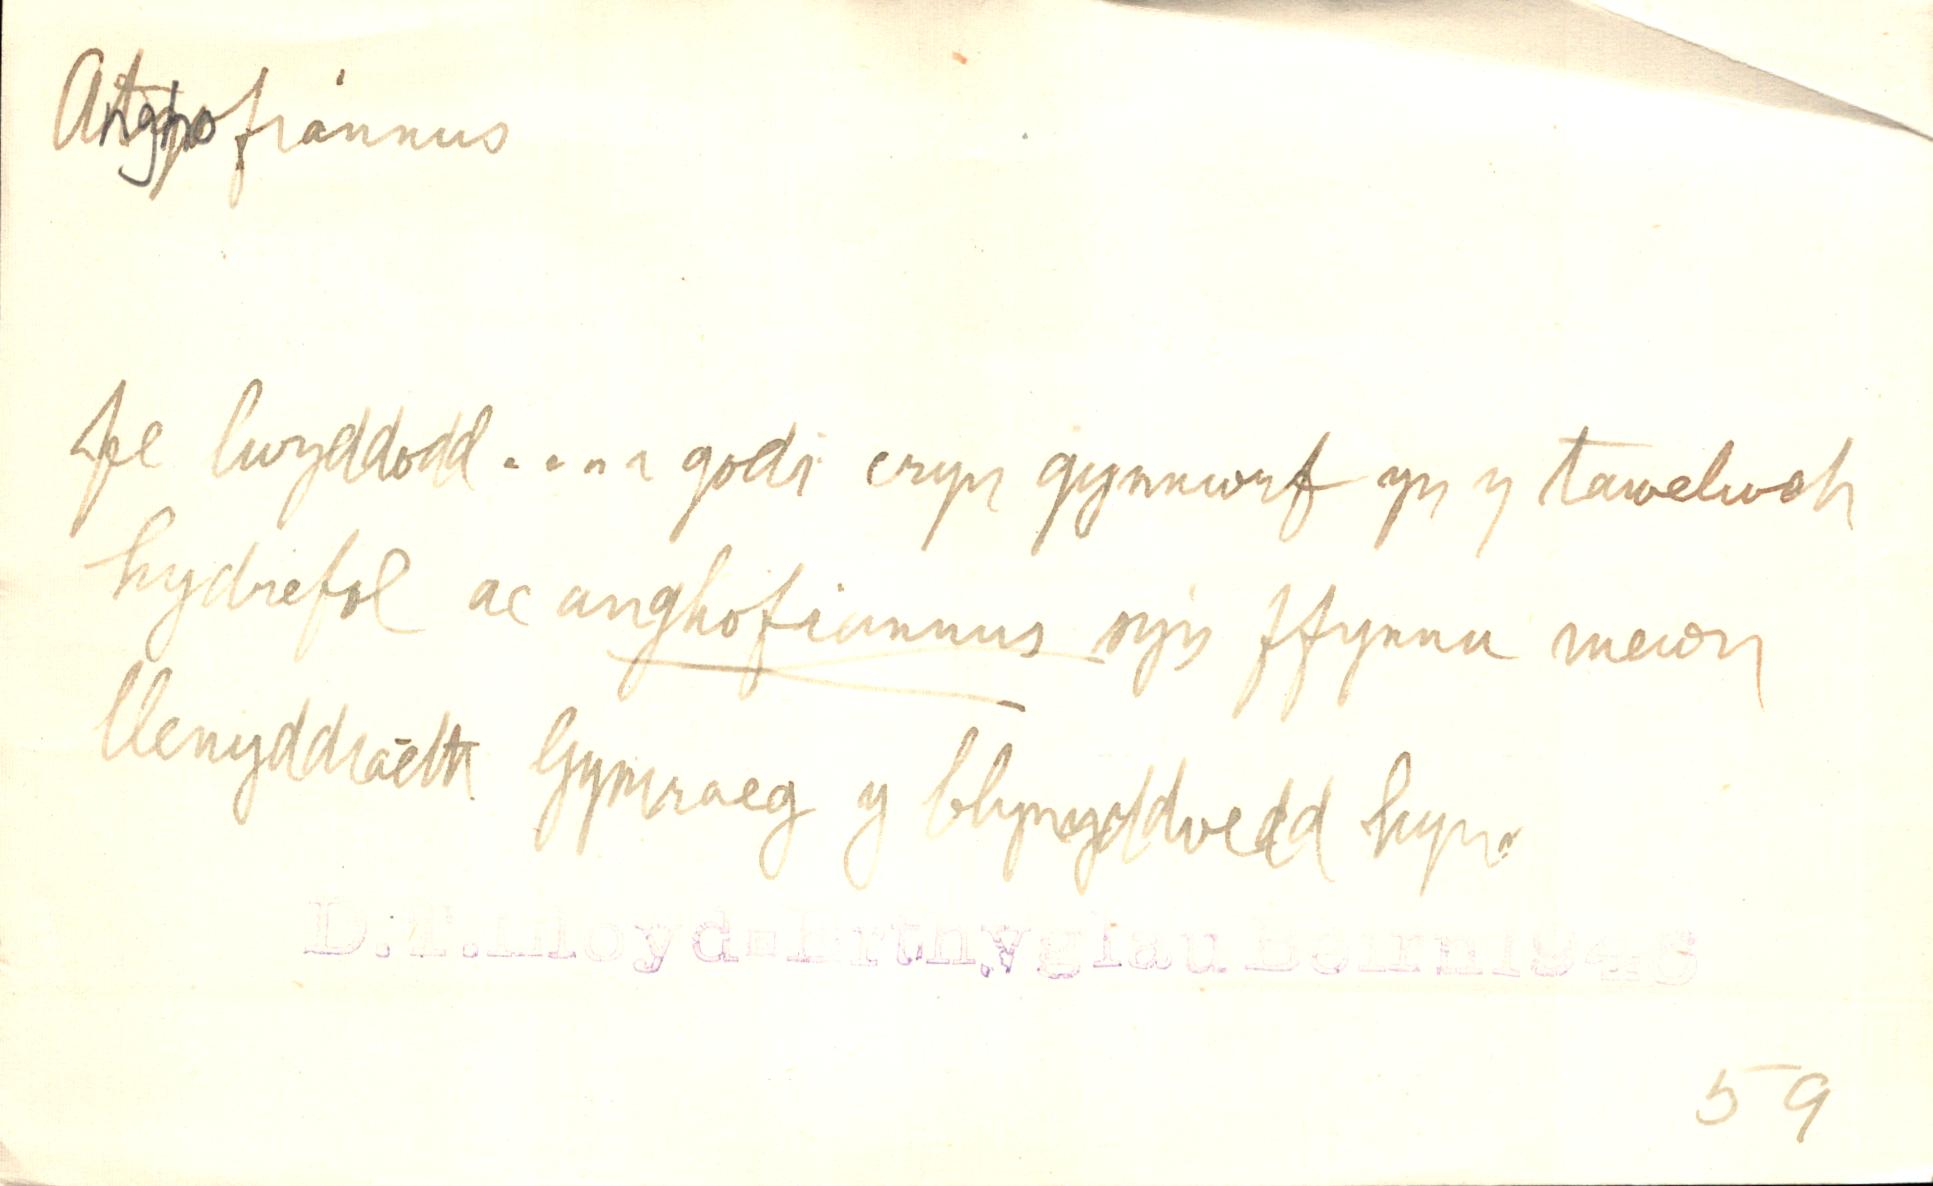 Anghofiannus
fe lwyddodd .... i godi cryn gynnwrf yn y tawelwch
hydrefol ac anghofiannus sy'n ffynnu mewn
llenyddiaeth Gymraeg y blynyddoedd hyn.
D.T.Lloyd-Erthyglau Beirn1946
59